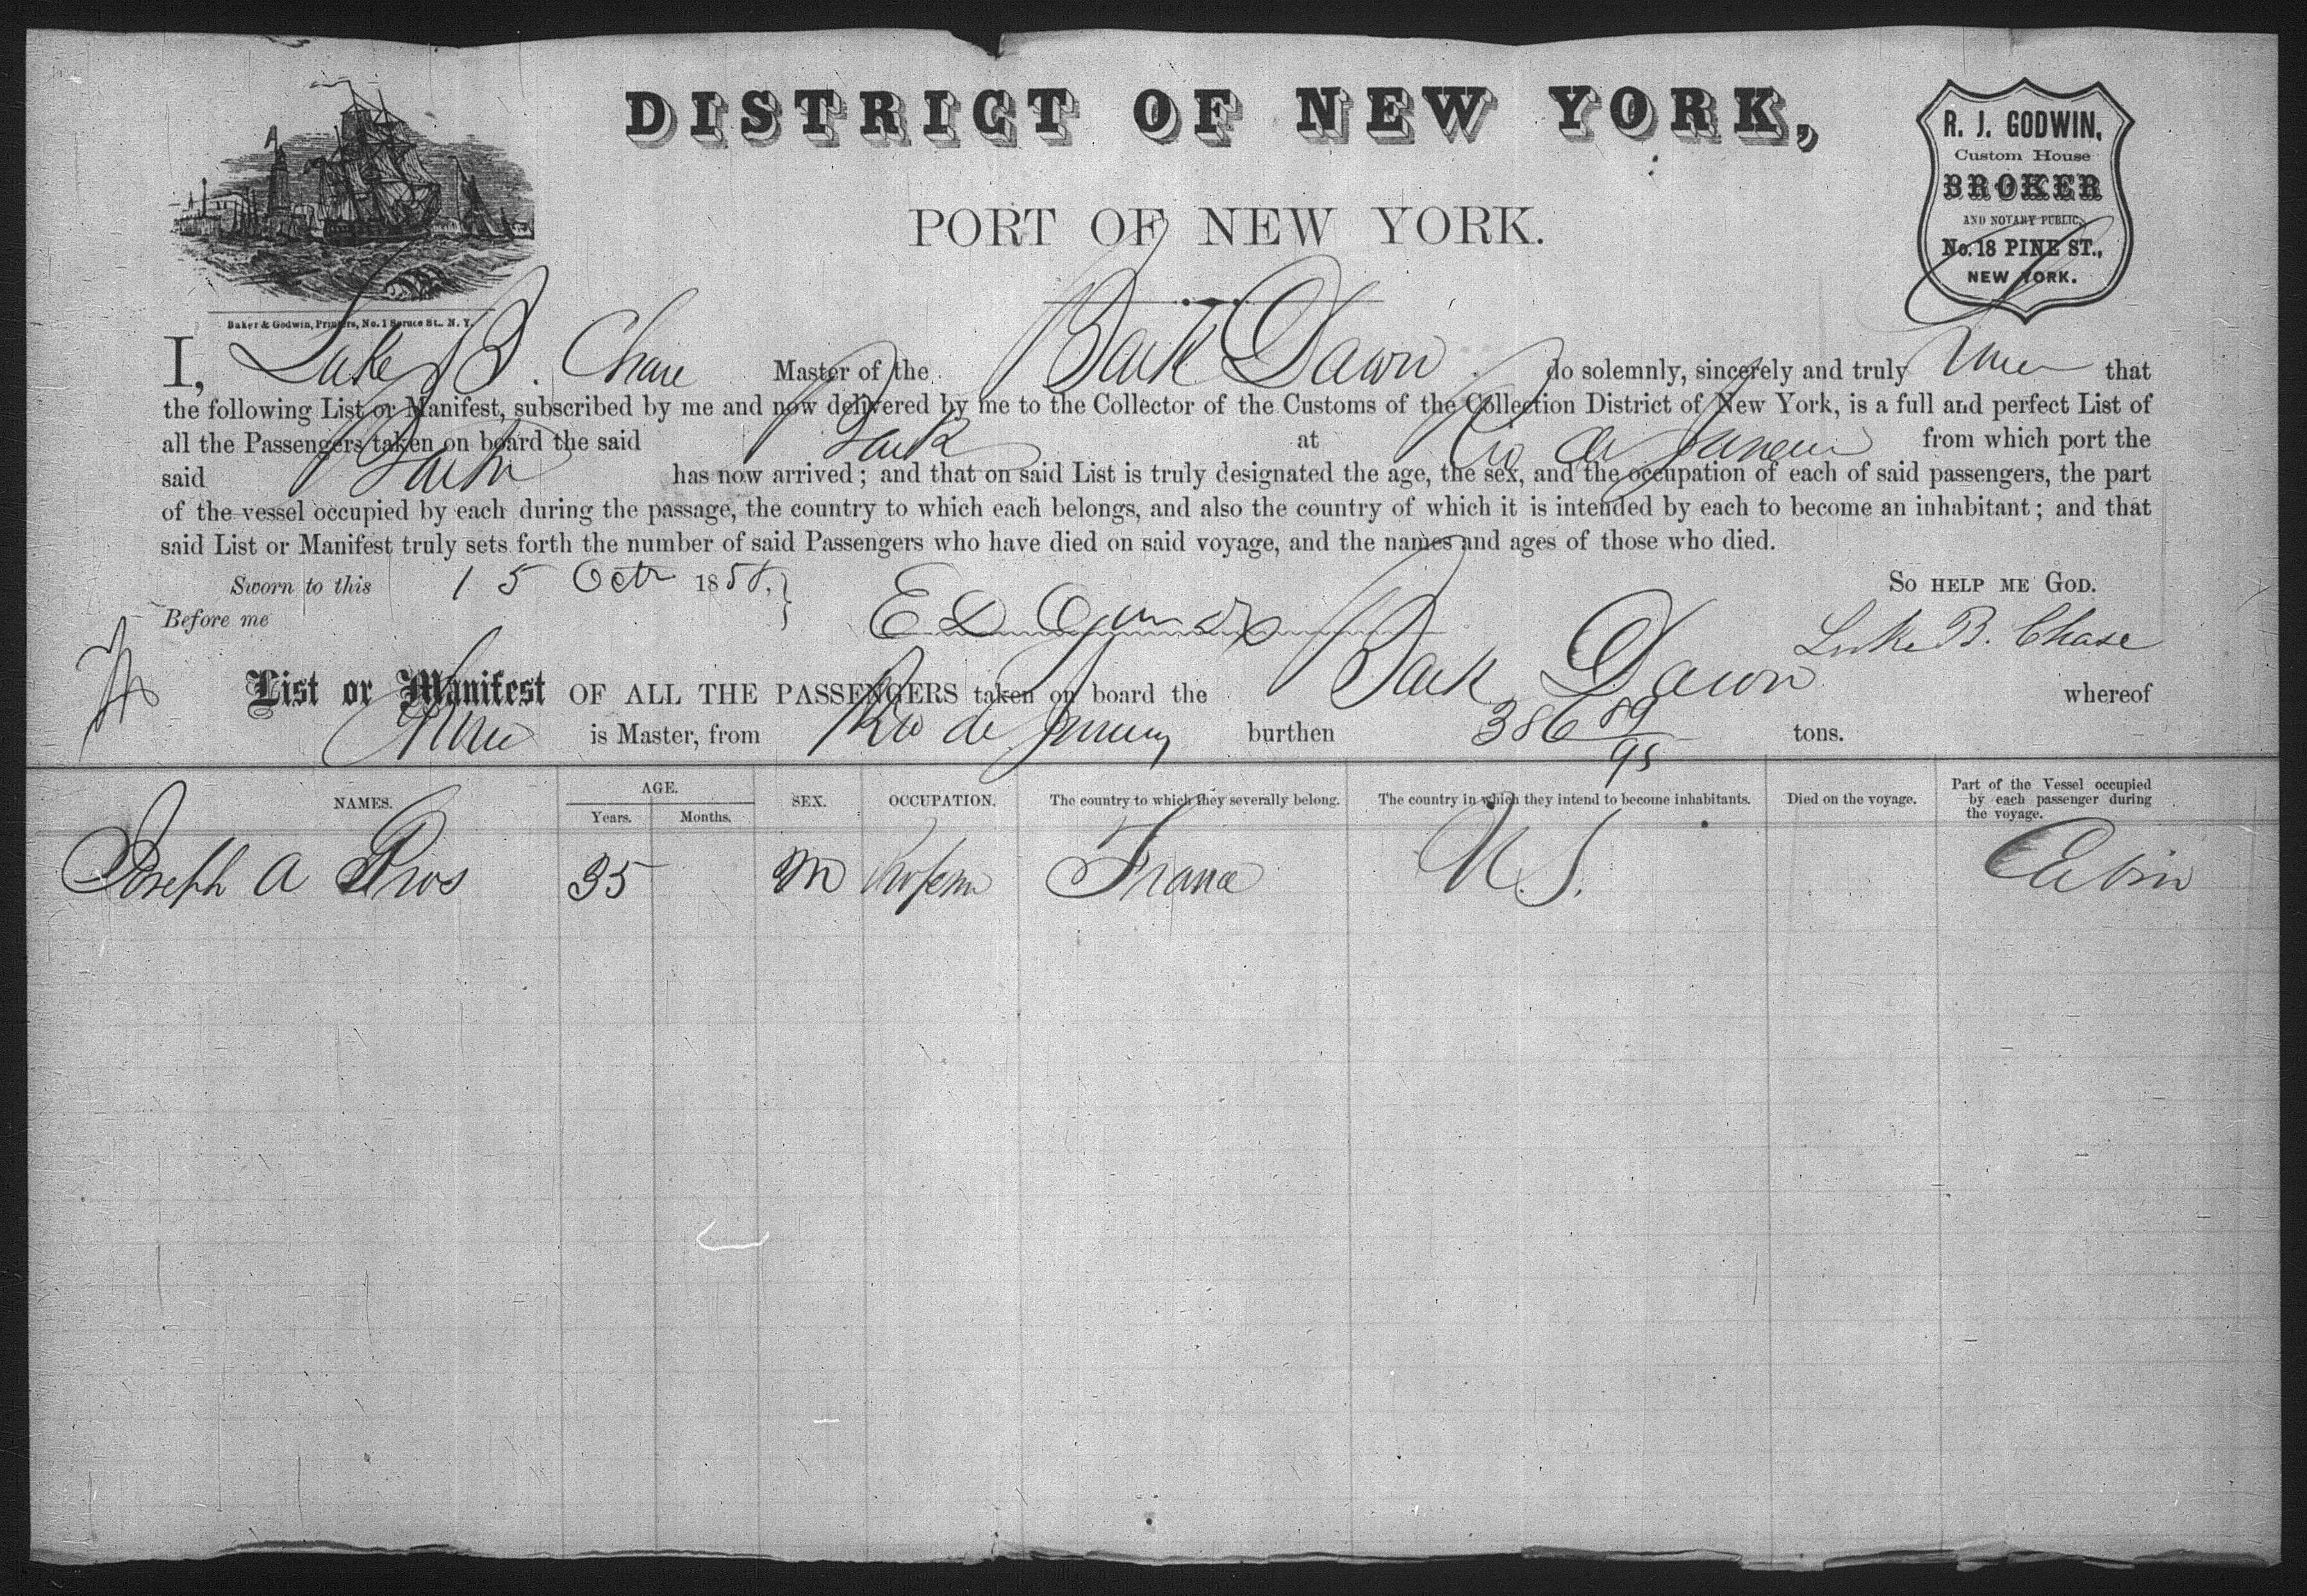 DISTRICT OF NEW YORK,
PORT OF NEW YORK.
R. J. GODWIN,
Custom House
BROKER
AND NOTARY PUBLIC,
No. 18 PINE ST.,
NEW YORK.
Baker & Godwin, Printers, No. 1 Spruce St., N. Y.
I, Luke B. Chase Master of the Bark Dawn do solemnly, sincerely and truly that
the following List or Manifest, subscribed by me and now delivered by me to the Collector of the Customs of the Collection District of New York, is a full and perfect List of
all the Passengers taken on board the said Bark at Rio de Janeiro from which port the
said Bark has now arrived; and that on said List is truly designated the age, the sex, and the occupation of each of said passengers, the part
of the vessel occupied by each during the passage, the country to which each belongs, and also the country of which it is intended by each to become an inhabitant; and that
said List or Manifest truly sets forth the number of said Passengers who have died on said voyage, and the names and ages of those who died.
Sworn to this 15 Octr 1858. So help me God.
Before me E D Luke B. Chase
List or Manifest OF ALL THE PASSENGERS taken on board the Bark Dawn whereof
Chase is Master, from Rio de Janeiro burthen 386 89/95 tons.
NAMES. AGE. Years. Months. SEX. OCCUPATION. The country to which they severally belong. The country in which they intend to become inhabitants. Died on the voyage. Part of the Vessel occupied by each passenger during the voyage.
Joseph A Pros 35 M France U.S. Cabin